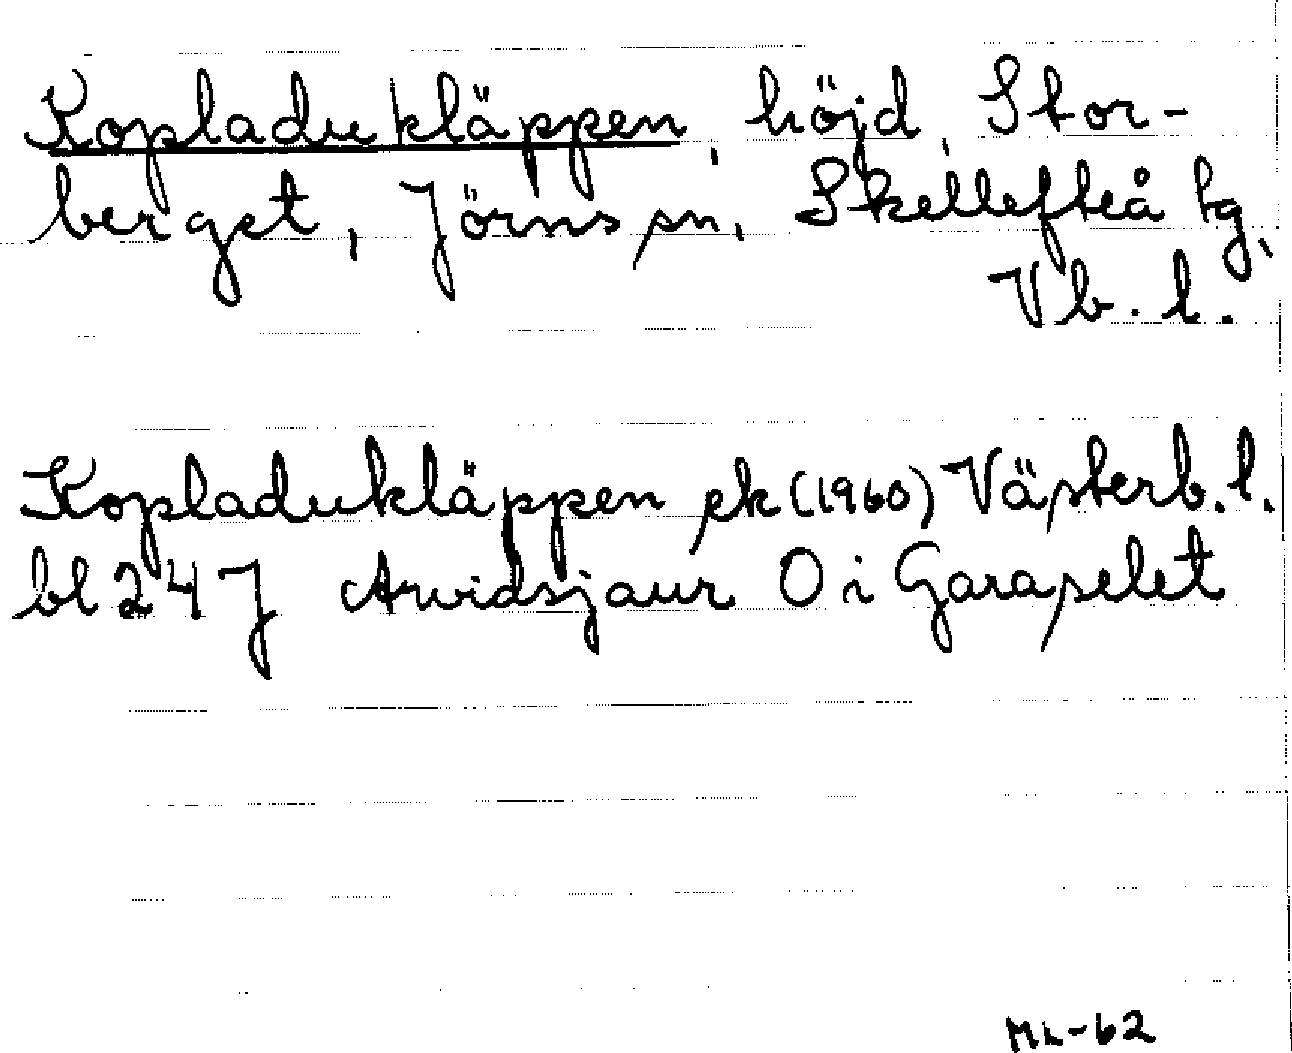 Kopladukläppen, höjd, Stor-
berget, Jörns sn, Skellefteå tg,
Vb. l.
Kopladukläppen ek (1960) Västerb. l.
bl 24 J Arvidsjaur O i Garaselet
ML-62